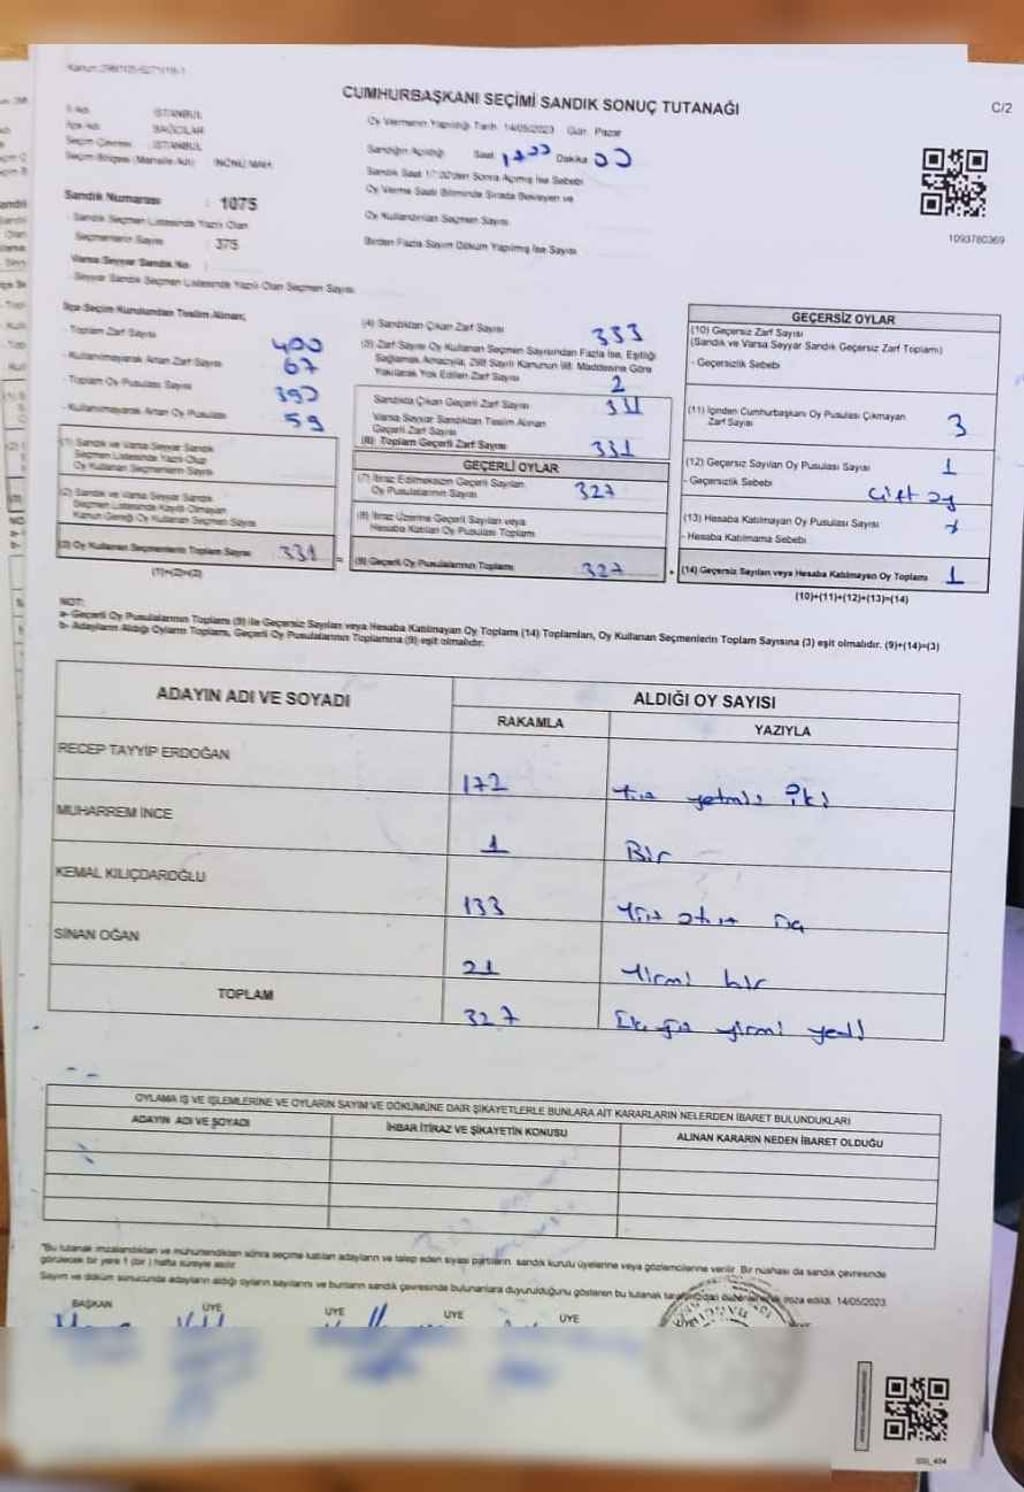 Kanun:298/105-5271/116-1
CUMHURBAŞKANI SEÇİMİ SANDIK SONUÇ TUTANAĞI
C/2
İl Adı : İSTANBUL
İlçe Adı : BAĞCILAR
Seçim Çevresi : İSTANBUL
Seçim Bölgesi (Mahalle Adı) : İNÖNÜ MAH.
Oy Vermenin Yapıldığı Tarih 14/05/2023 Gün Pazar
Sandığın Açıldığı Saat Dakika 00
Sandık Saat 17:00'den Sonra Açılmış İse Sebebi
Oy Verme Saati Bitiminde Sırada Bekleyen ve
Oy Kullandırılan Seçmen Sayısı
Birden Fazla Sayım Döküm Yapılmış İse Sayısı
1093780369
Sandık Numarası : 1075
- Sandık Seçmen Listesinde Yazılı Olan
Seçmenlerin Sayısı : 375
Varsa Seyyar Sandık No :
- Seyyar Sandık Seçmen Listesinde Yazılı Olan Seçmen Sayısı
İlçe Seçim Kurulundan Teslim Alınan;
- Toplam Zarf Sayısı 400
- Kullanılmayarak Artan Zarf Sayısı 67
- Toplam Oy Pusulası Sayısı
- Kullanılmayarak Artan Oy Pusulası 59
(1) Sandık ve Varsa Seyyar Sandık
Seçmen Listesinde Yazılı Olup
Oy Kullanan Seçmenlerin Sayısı
(2) Sandık ve Varsa Seyyar Sandık
Seçmen Listesinde Kayıtlı Olmayan
Kanun Gereği Oy Kullanan Seçmen Sayısı
(3) Oy Kullanan Seçmenlerin Toplam Sayısı 331
(1)+(2)=(3)
(4) Sandıktan Çıkan Zarf Sayısı 333
(5) Zarf Sayısı Oy Kullanan Seçmen Sayısından Fazla İse, Eşitliği
Sağlamak Amacıyla, 298 Sayılı Kanunun 98. Maddesine Göre
Yakılarak Yok Edilen Zarf Sayısı 2
Sandıkta Çıkan Geçerli Zarf Sayısı 331
Varsa Seyyar Sandıktan Teslim Alınan
Geçerli Zarf Sayısı
(6) Toplam Geçerli Zarf Sayısı 331
GEÇERLİ OYLAR
(7) İtiraz Edilmeksizin Geçerli Sayılan
Oy Pusulalarının Sayısı 327
(8) İtiraz Üzerine Geçerli Sayılan veya
Hesaba Katılan Oy Pusulası Toplamı
(9) Geçerli Oy Pusulalarının Toplamı 327
GEÇERSİZ OYLAR
(10) Geçersiz Zarf Sayısı
(Sandık ve Varsa Seyyar Sandık Geçersiz Zarf Toplamı)
- Geçersizlik Sebebi
(11) İçinden Cumhurbaşkanı Oy Pusulası Çıkmayan
Zarf Sayısı 3
(12) Geçersiz Sayılan Oy Pusulası Sayısı 1
- Geçersizlik Sebebi Çift oy
(13) Hesaba Katılmayan Oy Pusulası Sayısı
- Hesaba Katılmama Sebebi
(14) Geçersiz Sayılan veya Hesaba Katılmayan Oy Toplamı 1
(10)+(11)+(12)+(13)=(14)
NOT:
a- Geçerli Oy Pusulaları Toplamı (9) ile Geçersiz Sayılan veya Hesaba Katılmayan Oy Toplamı (14) Toplamları, Oy Kullanan Seçmenlerin Toplam Sayısına (3) eşit olmalıdır. (9)+(14)=(3)
b- Adayların Aldığı Oyların Toplamı, Geçerli Oy Pusulalarının Toplamına (9) eşit olmalıdır.
ADAYIN ADI VE SOYADI
ALDIĞI OY SAYISI
RAKAMLA YAZIYLA
RECEP TAYYİP ERDOĞAN 172 Yüz yetmiş iki
MUHARREM İNCE 1 Bir
KEMAL KILIÇDAROĞLU 133 Yüz otuz üç
SİNAN OĞAN 21 Yirmi bir
TOPLAM 327 yirmi yedi
OYLAMA İŞ VE İŞLEMLERİNE VE OYLARIN SAYIM VE DÖKÜMÜNE DAİR ŞİKAYETLERLE BUNLARA AİT KARARLARIN NELERDEN İBARET BULUNDUKLARI
ADAYIN ADI VE SOYADI İHBAR İTİRAZ VE ŞİKAYETİN KONUSU ALINAN KARARIN NEDEN İBARET OLDUĞU
"Bu tutanak imzalandıktan ve mühürlendikten sonra seçime katılan adayların ve talep eden siyasi partilerin sandık kurulu üyelerine veya gözlemcilerine verilir. Bir nüshası da sandık çevresinde
görülecek bir yere 1 (bir) hafta süreyle asılır.
Sayım ve döküm sonucunda adayların aldığı oyların sayılarını ve bunların sandık çevresinde bulunanlara duyurulduğunu gösteren bu tutanak tarafımızdan düzenlenerek imza edildi. 14/05/2023
BAŞKAN ÜYE ÜYE ÜYE ÜYE